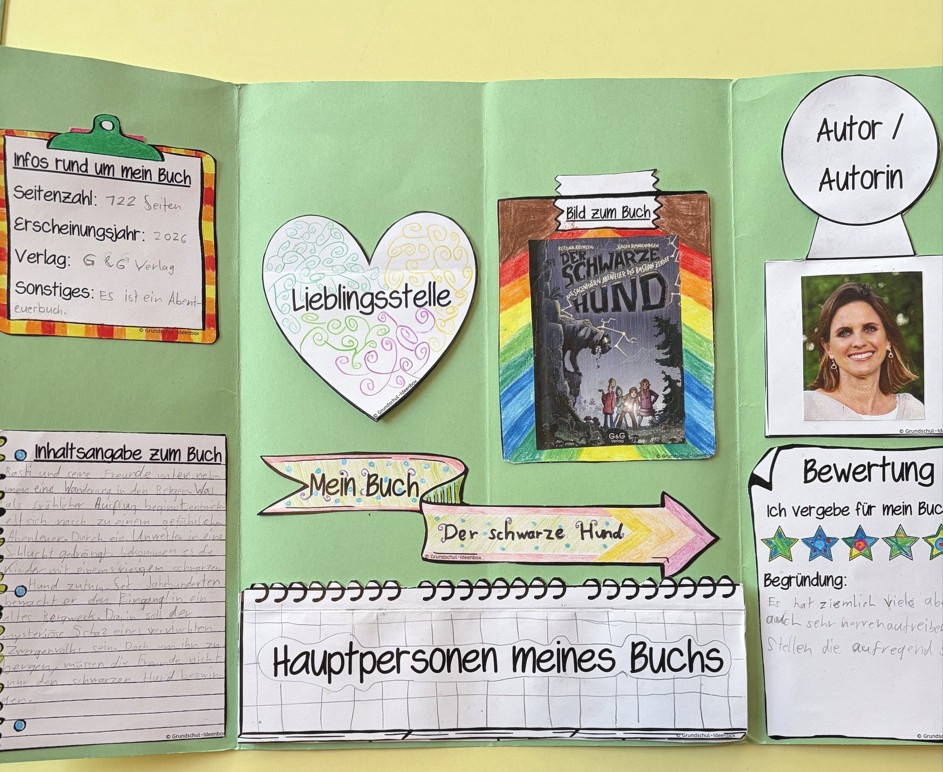 Infos rund um mein Buch
Seitenzahl: 122 Seiten
Erscheinungsjahr: 2026
Verlag: G & G Verlag
Sonstiges: Es ist ein Abent-
euerbuch.
© Grundschul-Ideenbox
Inhaltsangabe zum Buch
und seine Freunde unterneh-
men eine Wanderung in den Bergen. Was
als fröhlicher Ausflug
sich rasch zu einem gefährlichen
Abenteuer. Durch ein Unwetter in eine
Schlucht gedrängt, es die
Kinder mit einem riesigen schwarzen
Hund zutun. Seit Jahrhunderten
bewacht er den Eingang in ein
altes Bergwerk. Dort soll der
mysteriöse Schatz eines verfluchten
Zwergenvolks sein. Doch um ihn zu
bergen, müssen die Freunde nicht
nur den schwarzen Hund bezwin
© Grundschul-Ideenbox
Lieblingsstelle
© Grundschul-Ideenbox
Bild zum Buch
DER
SCHWARZE
HUND
G&G
Verlag
© Grundschul-Ideenbox
Mein Buch
Der schwarze Hund
© Grundschul-Ideenbox
Hauptpersonen meines Buchs
© Grundschul-Ideenbox
Autor /
Autorin
© Grundschul-Ideen
Bewertung
Ich vergebe für mein Buc
Begründung:
Es hat ziemlich viele ab
auch sehr nervenaufreibe
Stellen die aufregend s
© Grundsc